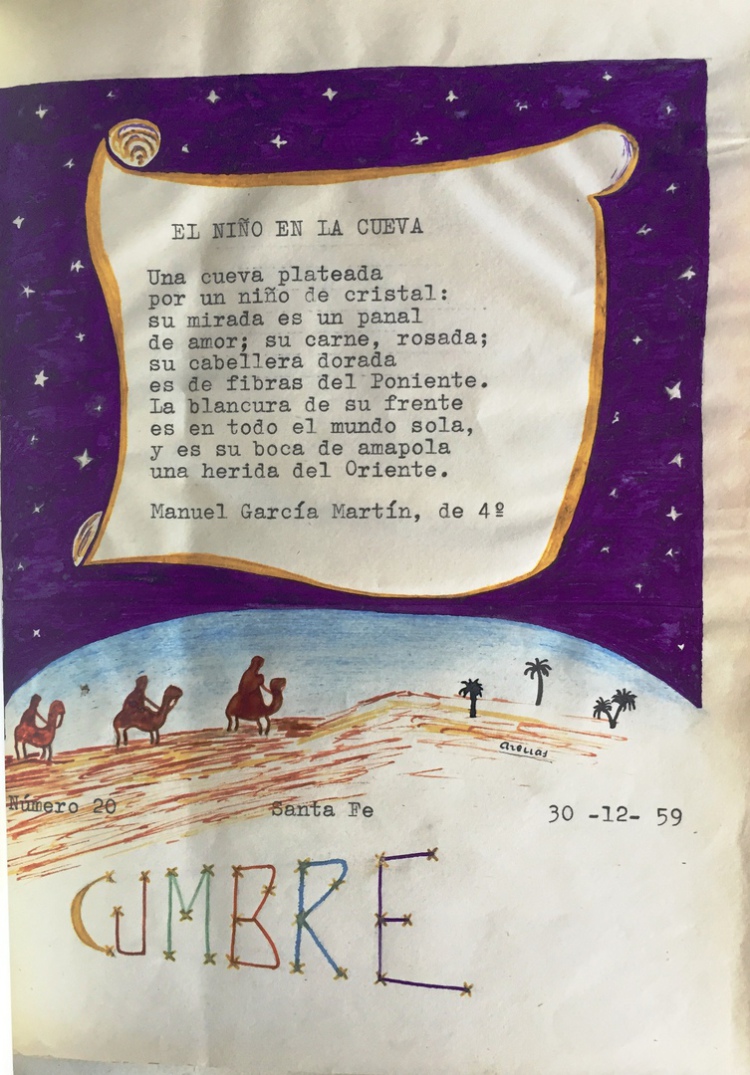 EL NIÑO EN LA CUEVA
Una cueva plateada
por un niño de cristal:
su mirada es un panal
de amor; su carne, rosada;
su cabellera dorada
es de fibras del Poniente.
La blancura de su frente
es en todo el mundo sola,
y es su boca de amapola
una herida del Oriente.
Manuel García Martín, de 4º
Número 20 Santa Fe 30 -12- 59
CUMBRE